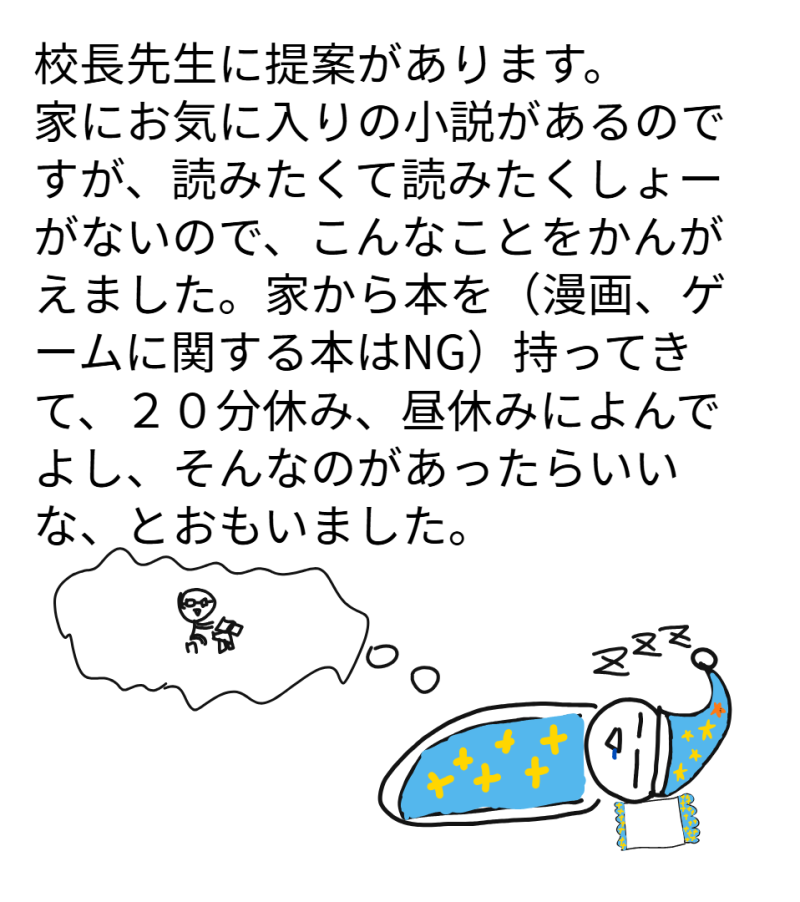 校長先生に提案があります。
家にお気に入りの小説があるので
すが、読みたくて読みたくしょー
がないので、こんなことをかんが
えました。家から本を（漫画、ゲ
ームに関する本はNG）持ってき
て、２０分休み、昼休みによんで
よし、そんなのがあったらいい
な、とおもいました。
z z z